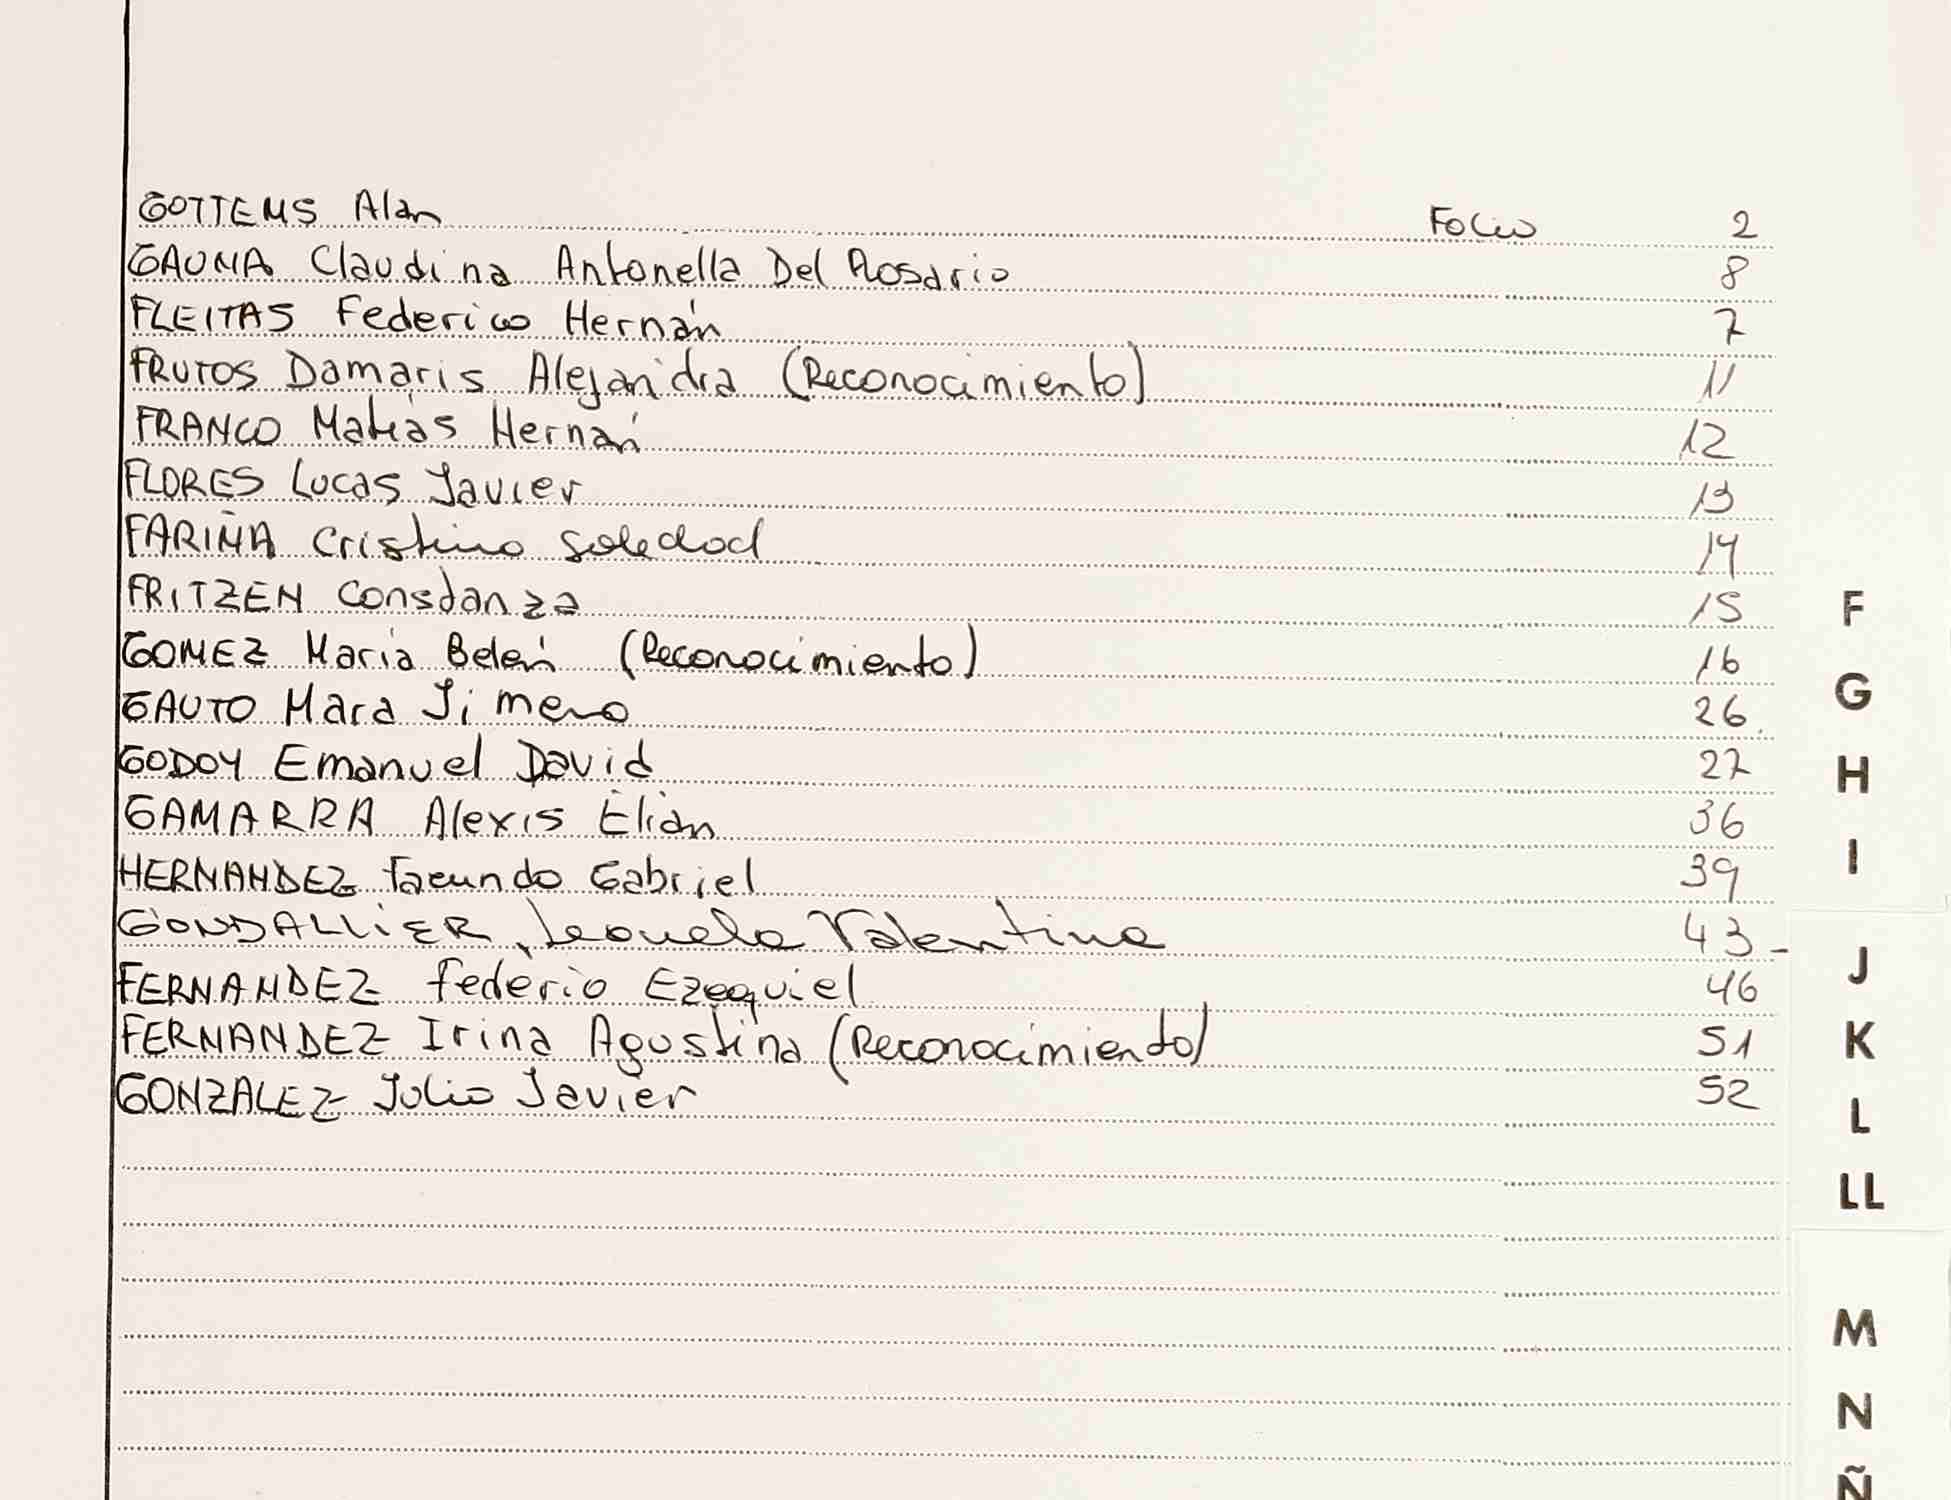 GOTTEMS Alan Folio 2
GAUNA Claudina Antonella Del Rosario 8
FLEITAS Federico Hernán 7
FRUTOS Damaris Alejandra (Reconocimiento) 11
FRANCO Matías Hernán 12
FLORES Lucas Javier 13
FARIÑA Cristina Soledad 14
FRITZEN Constanza 15
GOMEZ María Belén (Reconocimiento) 16
GAUTO Mara Jimena 26
GODOY Emanuel David 27
GAMARRA Alexis Elian 36
HERNANDEZ Facundo Gabriel 39
GONDALLIER, Valentina 43-
FERNANDEZ Federio Ezequiel 46
FERNANDEZ Irina Agustina (Reconocimiento) 51
GONZALEZ Julio Javier 52
F
G
H
I
J
K
L
LL
M
N
Ñ